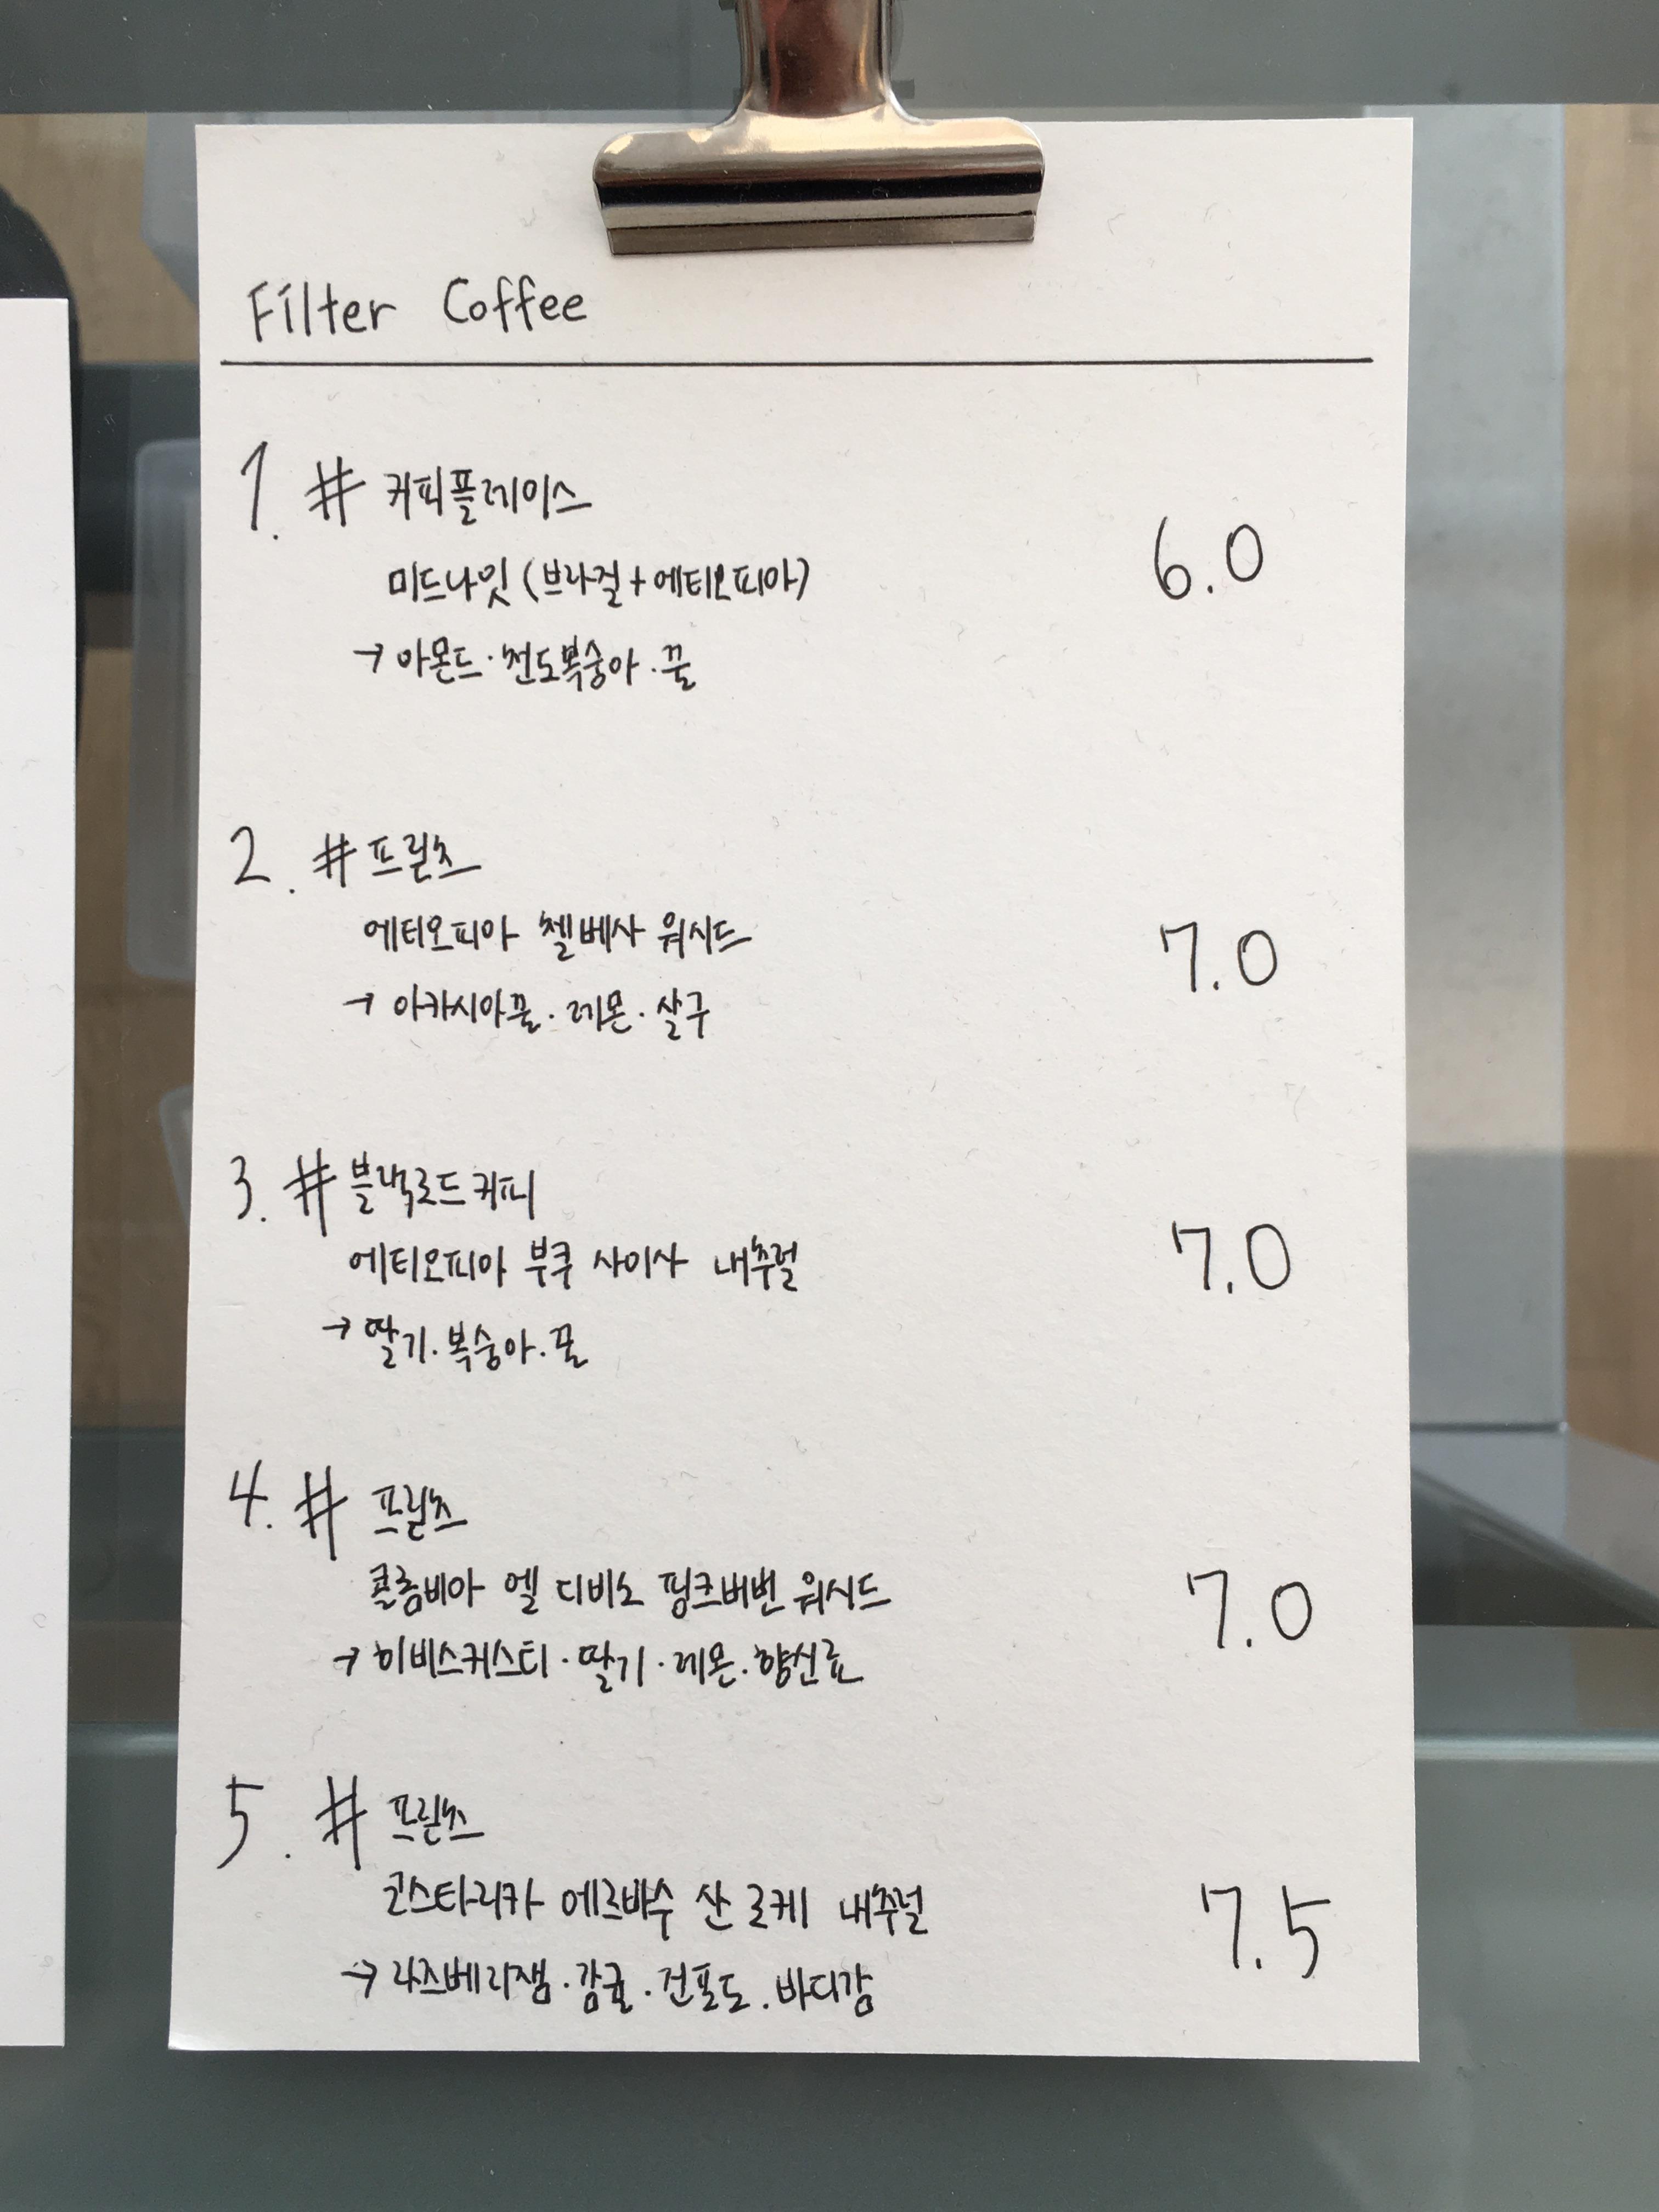 Filter Coffee
1. # 커피플레이스
미드나잇 (브라질+에티오피아)
6.0
→ 아몬드·천도복숭아·꿀
2. # 프릳츠
에티오피아 첼베사 워시드
7.0
→ 아카시아꿀·레몬·살구
3. # 블랙로드커피
에티오피아 부쿠 사이사 내추럴
7.0
→ 딸기·복숭아·꿀
4. # 프릳츠
콜롬비아 엘 디비노 핑크버번 워시드
7.0
→ 히비스커스티·딸기·레몬·향신료
5. # 프릳츠
코스타리카 에르바수 산 로케 내추럴
7.5
→ 라즈베리잼·감귤·건포도·바디감